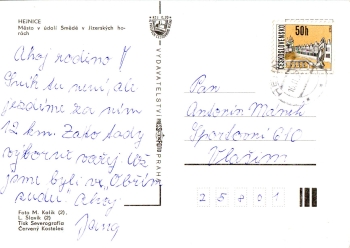 HEJNICE
Město v údolí Smědé v Jizerských ho-
rách
Ahoj rodino!
Sníh tu není, ale
jezdíme za ním
12 km. Zato tady
výborně vaří. Už
jsme byli v "Obřím
sudu". Ahoj
Foto M. Kolík (2),
L. Šlavík (2)
Tisk Severografia
Červený Kostelec
VYDAVATELSTVÍ
PRAHA
50h
ČESKOSLOVENSKO
Pan
Antonín Mánek
Sportovní 610
Vlašim
25801